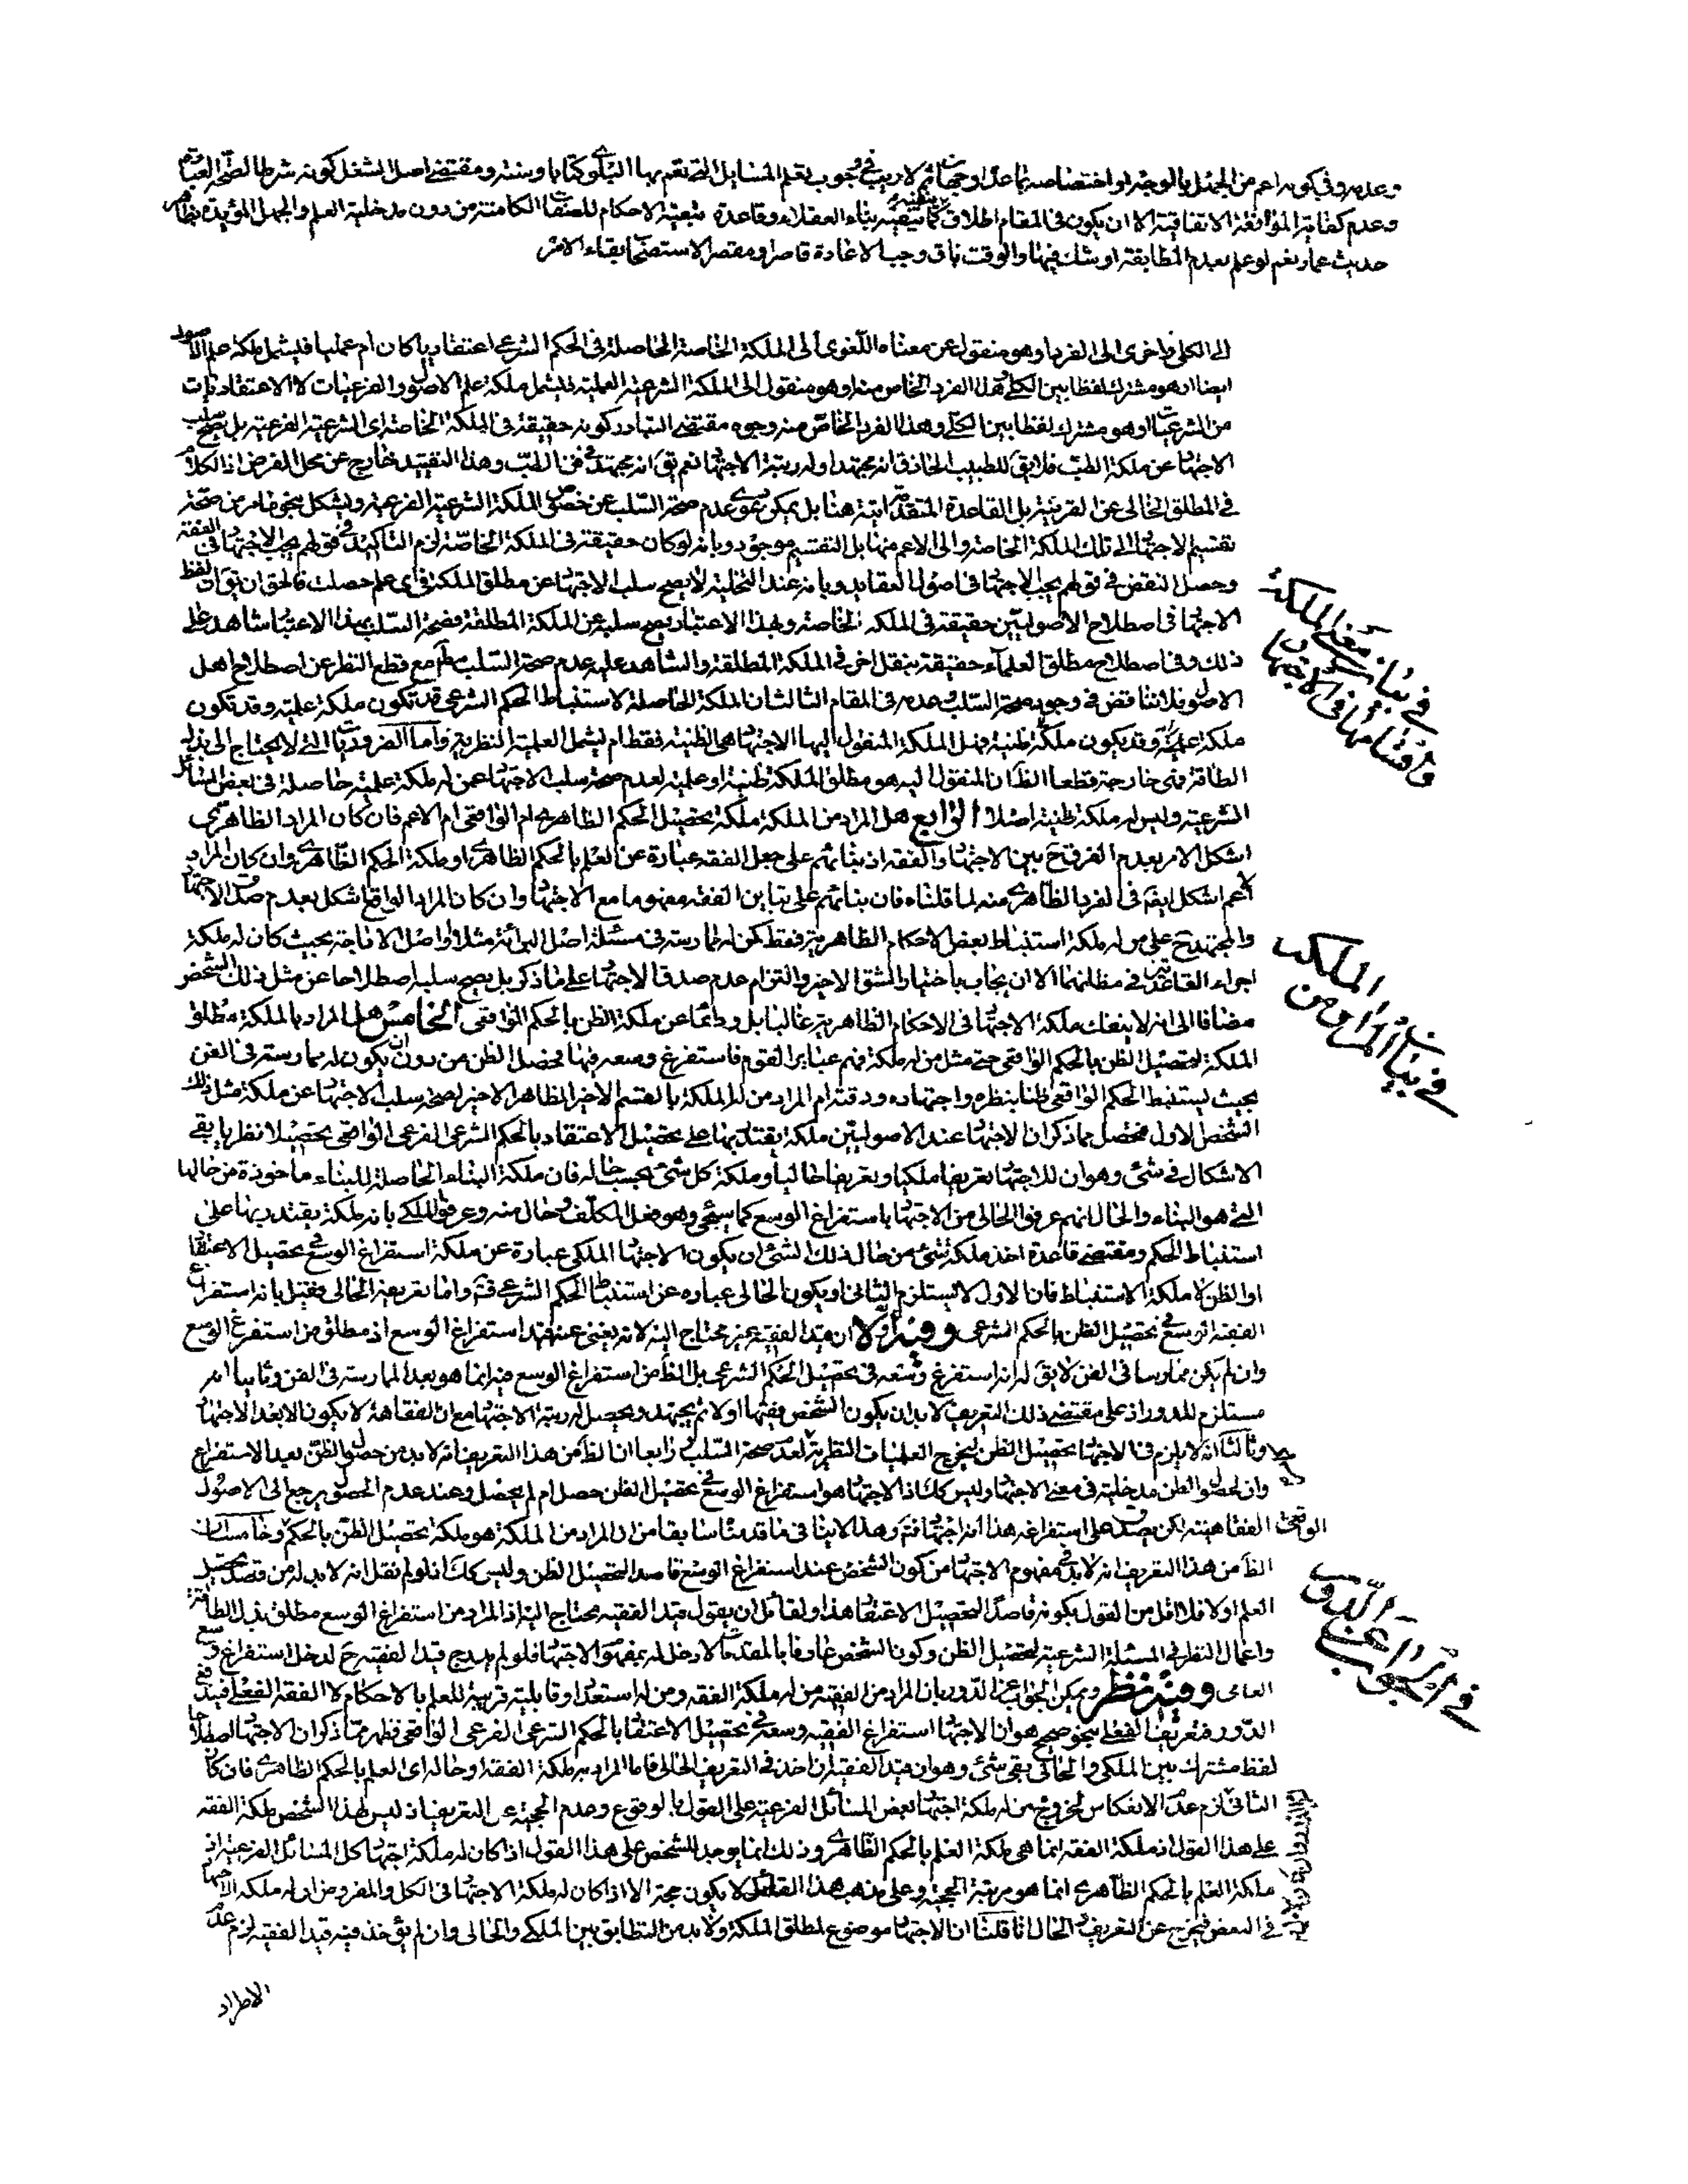 وعدمه وفى كونه اعم من الجهل بالوجه او اختصاصه بما عداه وجهان ثم لا ريب فى وجوب تعلم المسايل التى تعم بها البلوى كتابا وسنة ومقتضى اصل الشغل كونه شرطا لصحة العبادة
وعدم كفاية الموافقة الاتفاقية الا ان يكون فى المقام اطلاق كما يقتضيه بناء العقلاء وقاعدة تبعية الاحكام للصفات الكامنة من دون مدخلية العلم والجهل المؤيدة بظاهر
حديث عمار نعم لو علم بعدم المطابقة او شك فيها والوقت باق وجب الاعادة قاصرا ومقصرا لاستصحاب بقاء الامر
الى الكلى واخرى الى الفرد او هو منقول عن معناه اللغوى الى الملكة الخاصة الحاصلة فى الحكم الشرعى اعتقاديا كان ام عمليا فيشمل ملكة علم الاصول
ايضا او هو مشترك لفظا بين الكلى وهذا الفرد الخاص منه او هو منقول الى الملكة الشرعية العملية فيشمل ملكة علم الاصول والفرعيات لا الاعتقاديات
من الشرعيات او هو مشترك لفظا بين الكلى وهذا الفرد الخاص منه وجوه مقتضى التبادر كونه حقيقة فى الملكة الخاصة اى الشرعية الفرعية بل يصح سلب
الاجتهاد عن ملكة الطب فلا يق للطبيب الحاذق انه مجتهد او له رتبة الاجتهاد نعم يق انه مجتهد فى فن الطب وهذا التقييد خارج عن محل الفرض اذ الكلام
فى المطلق الخالى عن القرينة بل القاعدة المتقدمة اتية هنا بل يمكن دعوى عدم صحة السلب عن خصوص الملكة الشرعية الفرعية ويشكل بنحو ما مر من صحة
تقسيم الاجتهاد الى تلك الملكة الخاصة والى الاعم منها بل التقسيم موجود وبانه لو كان حقيقة فى الملكة الخاصة لزم التاكيد فى قولهم يجب الاجتهاد فى الفقه
وحصل النقض فى قولهم يجب الاجتهاد فى اصول العقايد وبانه عند التخلية لا يصح سلب الاجتهاد عن مطلق الملكة فى اى علم حصلت فالحق ان يق ان لفظ
الاجتهاد فى اصطلاح الاصوليين حقيقة فى الملكة الخاصة وبهذا الاعتبار يصح سلبه عن الملكة المطلقة فصحة السلب بهذا الاعتبار شاهد على
ذلك وفى اصطلاح مطلق العلماء حقيقة بنقل اخر فى الملكة المطلقة والشاهد عليه عدم صحة السلب مطم مع قطع النظر عن اصطلاح اهل
الاصول فلا تناقض فى وجود صحة السلب وعدمه فى المقام الثالث ان الملكة الحاصلة لاستنباط الحكم الشرعى قد تكون ملكة علمية وقد تكون
وقد يكون ملكة ظنية فهل الملكة المنقول اليها الاجتهاد هى الظنية فقط ام يشمل العلمية النظرية واما الضروريات التى لا يحتاج الى بذل
الطاقة فهى خارجة قطعا الظ ان المنقول اليه هو مطلق الملكة ظنية او علمية لعدم صحة سلب الاجتهاد عمن له ملكة علمية حاصلة فى بعض المسائل
الشرعية وليس له ملكة ظنية اصلا الرابع هل المراد من الملكة ملكة تحصيل الحكم الظاهرى ام الواقعى ام الاعم فان كان المراد الظاهرى
اشكل الامر بعدم الفرق ح بين الاجتهاد والفقه اذ بنائهم على جعل الفقه عبارة عن العلم بالحكم الظاهرى او ملكة الحكم الظاهرى وان كان المراد
الاعم اشكل ايضا فى الفرد الظاهرى منه لما قلناه فان بنائهم على تباين الفقه مفهوما مع الاجتهاد وان كان المراد الواقعى اشكل بعدم صدق الاجتهاد
والمجتهد ح على من له ملكة استنباط بعض الاحكام الظاهرية فقط كمن له ممارسة فى مسئلة اصل البرائة مثلا او اصل الاباحة بحيث كان له ملكة
اجراء القاعدتين فى مظانهما الا ان يجاب باختيار الشق الاخير والتزام عدم صدق الاجتهاد على ما ذكر بل يصح سلبه اصطلاحا عن مثل ذلك الشخص
مضافا الى انه لا ينفك ملكة الاجتهاد فى الاحكام الظاهرية غالبا بل دائما عن ملكة الظن بالحكم الواقعى الخامس هل المراد بالملكة مطلق
الملكة لتحصيل الظن بالحكم الواقعى حتى مثل من له ملكة فهم عباير القوم فاستفرغ وسعه فيها فحصل الظن من دون ان يكون له ممارسة فى الفن
بحيث يستنبط الحكم الواقعى ظنا بنظره واجتهاده ودقته ام المراد من الملكة بالقسم الاخير الظاهر الاخير لصحة سلب الاجتهاد عن ملكة مثل ذلك
الشخص الاول فحصل مما ذكر ان الاجتهاد عند الاصوليين ملكة يقتدر بها على تحصيل الاعتقاد بالحكم الشرعى الفرعى الواقعى تحصيلا نظريا بقى
الاشكال فى شئ وهو ان للاجتهاد تعريفا ملكيا وتعريفا حاليا وملكة كل شئ بحسب حاله فان ملكة البناء الحاصلة للبناء ماخوذة من حالها
التى هو البناء والحال انهم عرفوا الحالى من الاجتهاد باستفراغ الوسع كما سيجئ وهو فعل المكلف وحال منه وعرفوا الملكى بانه ملكة يقتدر بها على
استنباط الحكم ومقتضى قاعدة اخذ ملكة شئ من حال ذلك الشئ ان يكون الاجتهاد الملكى عبارة عن ملكة استفراغ الوسع فى تحصيل الاعتقاد
او الظن لا ملكة الاستنباط فان الاول لا يستلزم الثانى او يكون الحالى عباره عن استنباط الحكم الشرعى فتم واما تعريفه الحالى فقيل بانه استفراغ
الفقيه الوسع فى تحصيل الظن بالحكم الشرعى وفيه اولا ان قيد الفقيه غير محتاج اليه لانه يغنى عنه قيد استفراغ الوسع اذ مطلق من استفرغ الوسع
وان لم يكن ممارسا فى الفن لا يق له انه استفرغ وسعه فى تحصيل الحكم الشرعى بل الظ من استفراغ الوسع فيه انما هو بعد الممارسة فى الفن وثانيا انه
مستلزم للدور اذ على مقتضى ذلك التعريف لا بد ان يكون الشخص فقيها اولا ثم يجتهد ويحصل له رتبة الاجتهاد مع ان الفقاهة لا يكون الا بعد الاجتهاد
وثالثا انه لا يلزم فى الاجتهاد تحصيل الظن ليخرج العلميات النظرية لعدم صحة السلب ورابعا ان الظ من هذا التعريف انه لا بد من حصول الظن بعد الاستفراغ
وان لحصول الظن مدخلية فى معنى الاجتهاد وليس كك اذ الاجتهاد هو استفراغ الوسع فى تحصيل الظن حصل ام لم يحصل وعند عدم الحصول يرجع الى الاصول
الفقاهتية لكن يصدق على استفراغه هذا انه اجتهاد فتم وهذا لا ينافى ما قدمناه سابقا من ان المراد من الملكة هو ملكة تحصيل الظن بالحكم الواقعى وخامسا ان
الظ من هذا التعريف انه لا بد فى مفهوم الاجتهاد من كون الشخص عند استفراغ الوسع قاصدا لتحصيل الظن وليس كك اذ لو لم نقل انه لا بد له من قصد تحصيل
العلم اولا فلا اقل من القول بكونه قاصدا لتحصيل الاعتقاد هذا ولقائل ان يقول قيد الفقيه محتاج اليه اذ المراد من استفراغ الوسع مطلق بذل الطاقة
واعمال النظر فى المسئلة الشرعية لتحصيل الظن وكون الشخص عارفا بالمقدمات لا دخل له بمفهوم الاجتهاد فلو لم يدرج قيد الفقيه ح لدخل استفراغ وسع
العامى وفيه نظر ويمكن الجواب عن الدور بان المراد من الفقيه من له ملكة الفقه ومن له استعداد وقابلية قريبة للعلم بالاحكام لا الفقه الفعلى فيندفع
الدور فتعريف الفعلى بنحو صحيح هو ان الاجتهاد استفراغ الفقيه وسعه فى تحصيل الاعتقاد بالحكم الشرعى الفرعى الواقعى فظهر مما ذكر ان الاجتهاد اصطلاحا
لفظ مشترك بين الملكى والحالى بقى شئ وهو ان قيد الفقيه ان اخذ فى التعريف الحالى فاما المراد به ملكة الفقه او حاله اى العلم بالحكم الظاهرى فان كان
الثانى لزم عدم الانعكاس لخروج من له ملكة اجتهاد بعض المسائل الفرعية على القول بالوقوع وعدم الحجية عن التعريف اذ ليس لهذا الشخص ملكة الفقه
على هذا القول اذ ملكة الفقه انما هى ملكة العلم بالحكم الظاهرى وذلك انما يوجد للشخص على هذا القول اذا كان له ملكة اجتهاد كل المسائل الفرعية اذ
ملكة العلم بالحكم الظاهرى انما هو مرتبة الحجية وعلى مذهب هذا القائل لا يكون حجة الا اذا كان له ملكة الاجتهاد فى الكل والمفروض ان له ملكة الاجتهاد
فى البعض فيخرج عن التعريف الحال انا قلنا ان الاجتهاد موضوع لمطلق الملكة ولا بد من التطابق بين الملكى والحالى وان لم يؤخذ فيه قيد الفقيه لزم عدم
الاطراد
فى بيان معنى الملكة
واقسامها فى الاجتهاد
فى بيان المراد من
الملكة
فى الجواب عن الدور